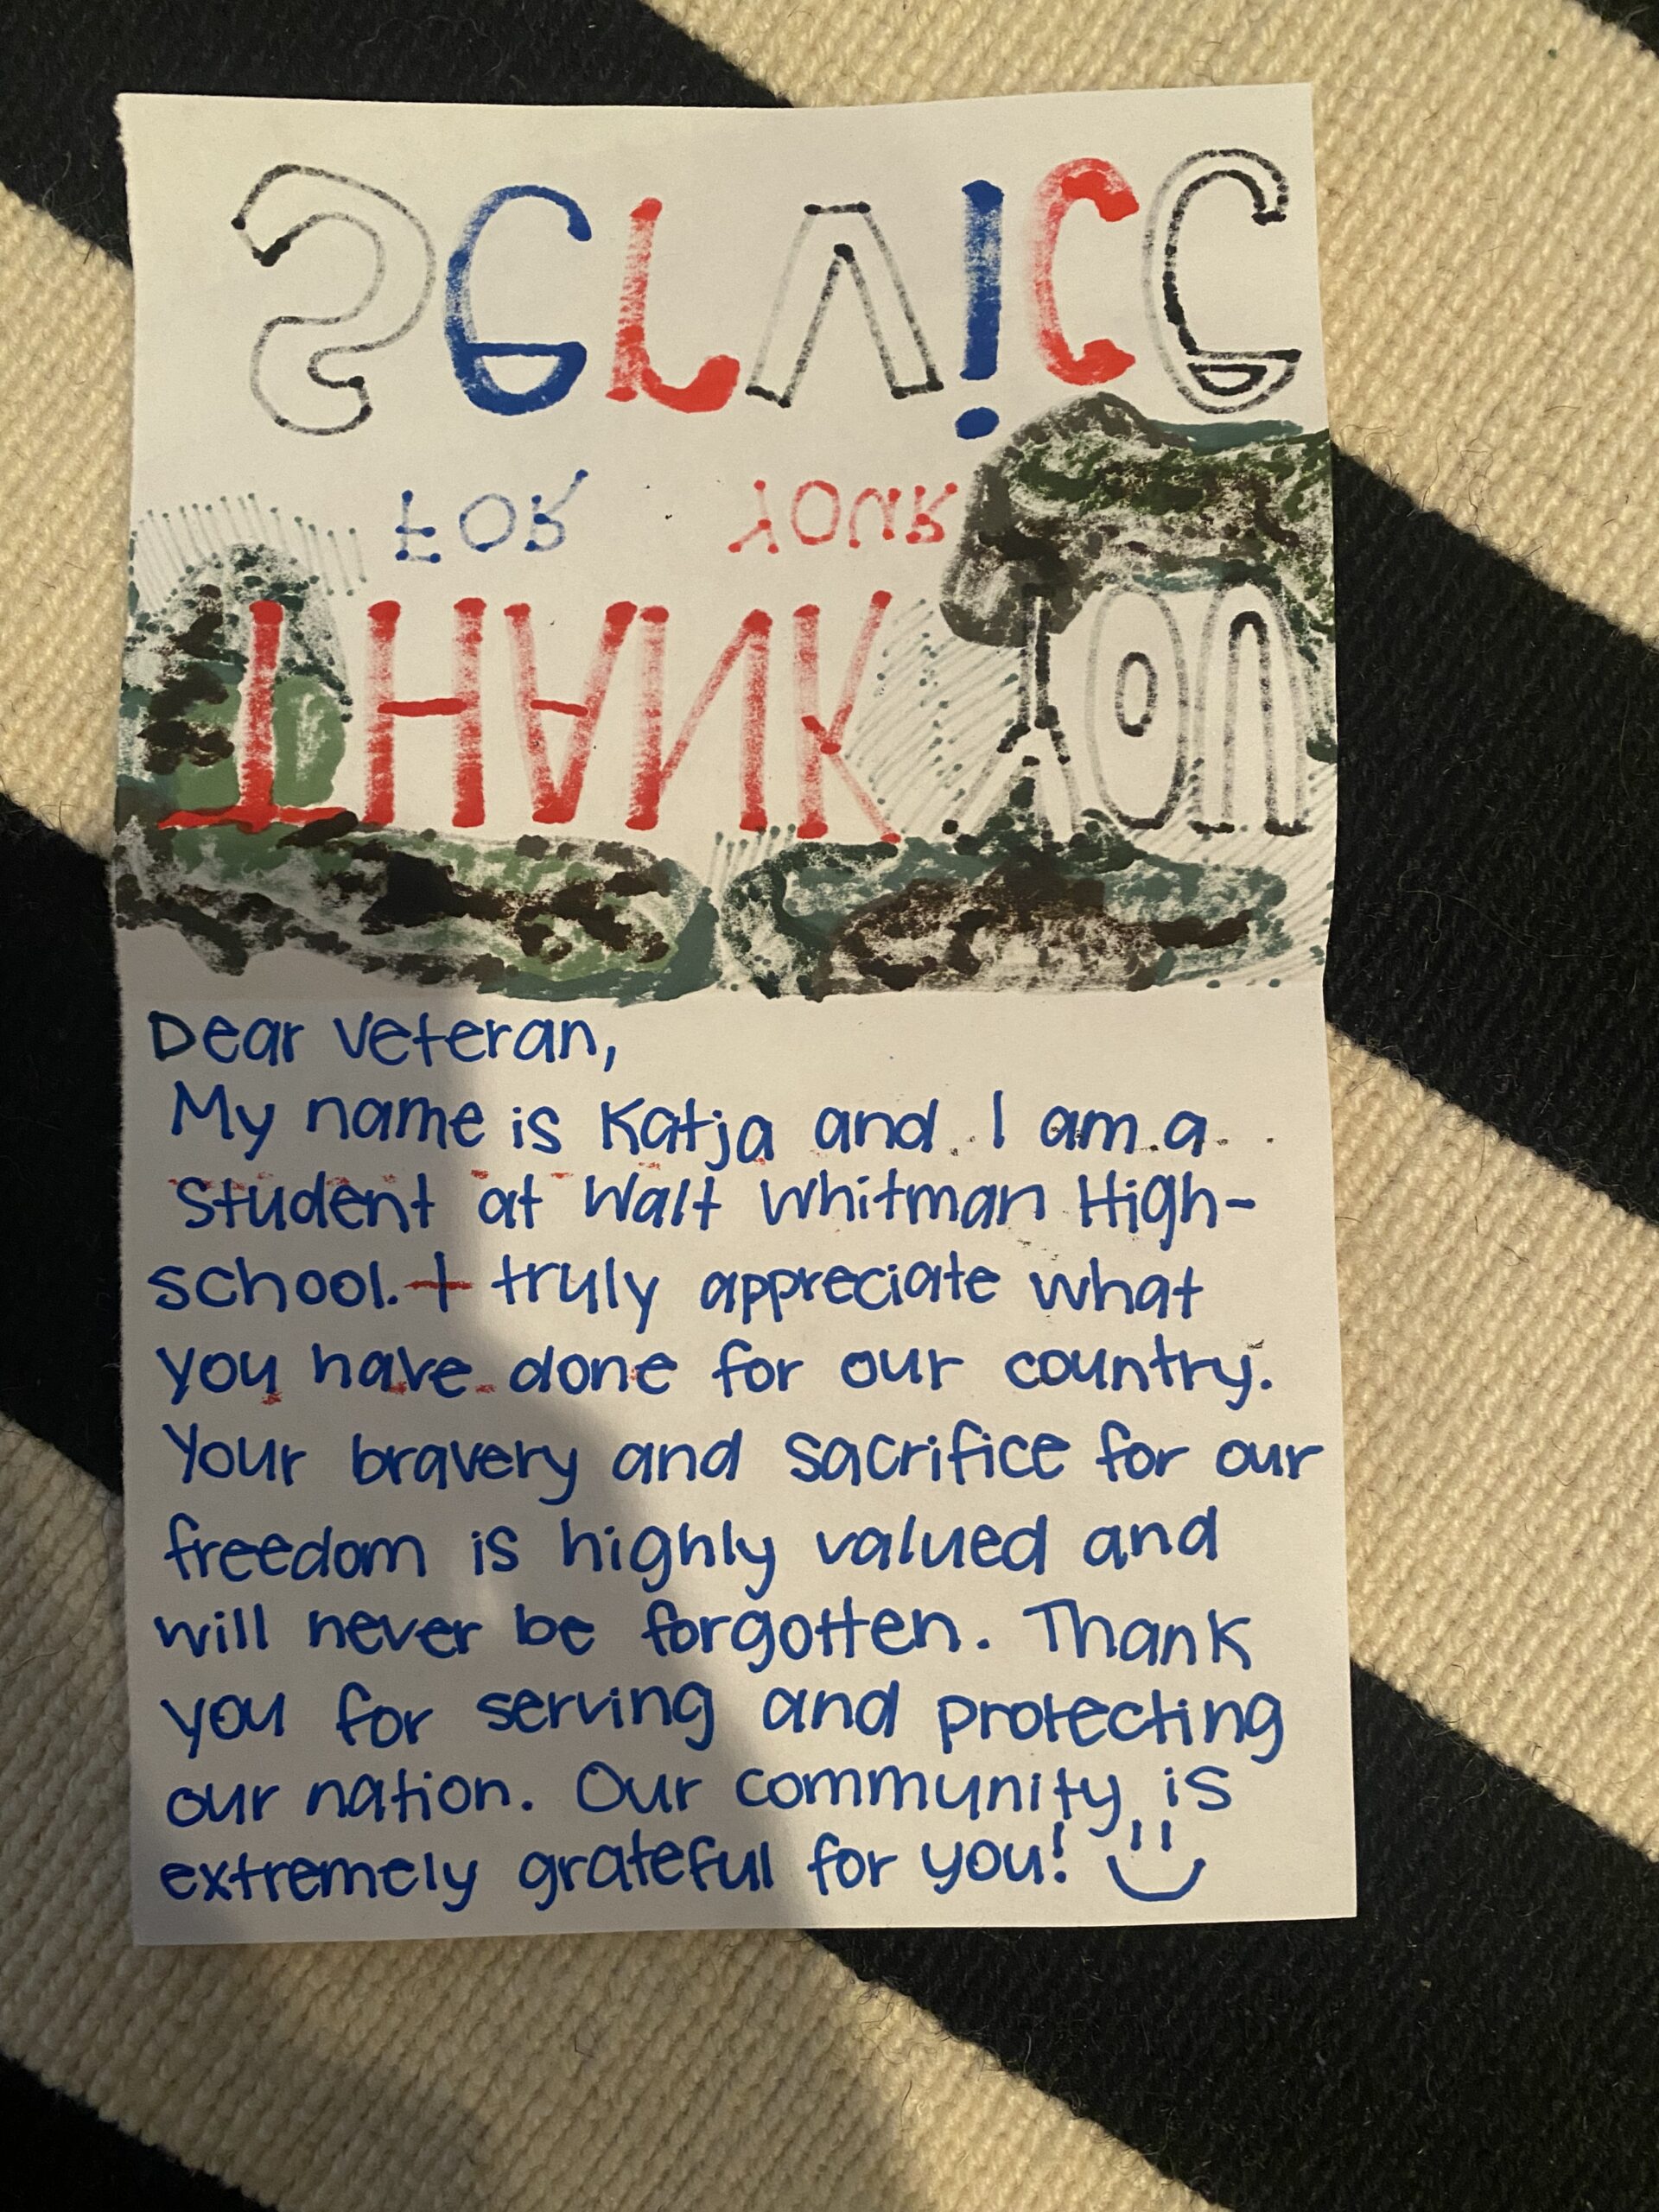 THANK YOU
FOR YOUR
Service
Dear veteran,
My name is Katja and I am a
student at Walt Whitman High-
school. I truly appreciate what
you have done for our country.
Your bravery and sacrifice for our
freedom is highly valued and
will never be forgotten. Thank
you for serving and protecting
our nation. Our community is
extremely grateful for you!